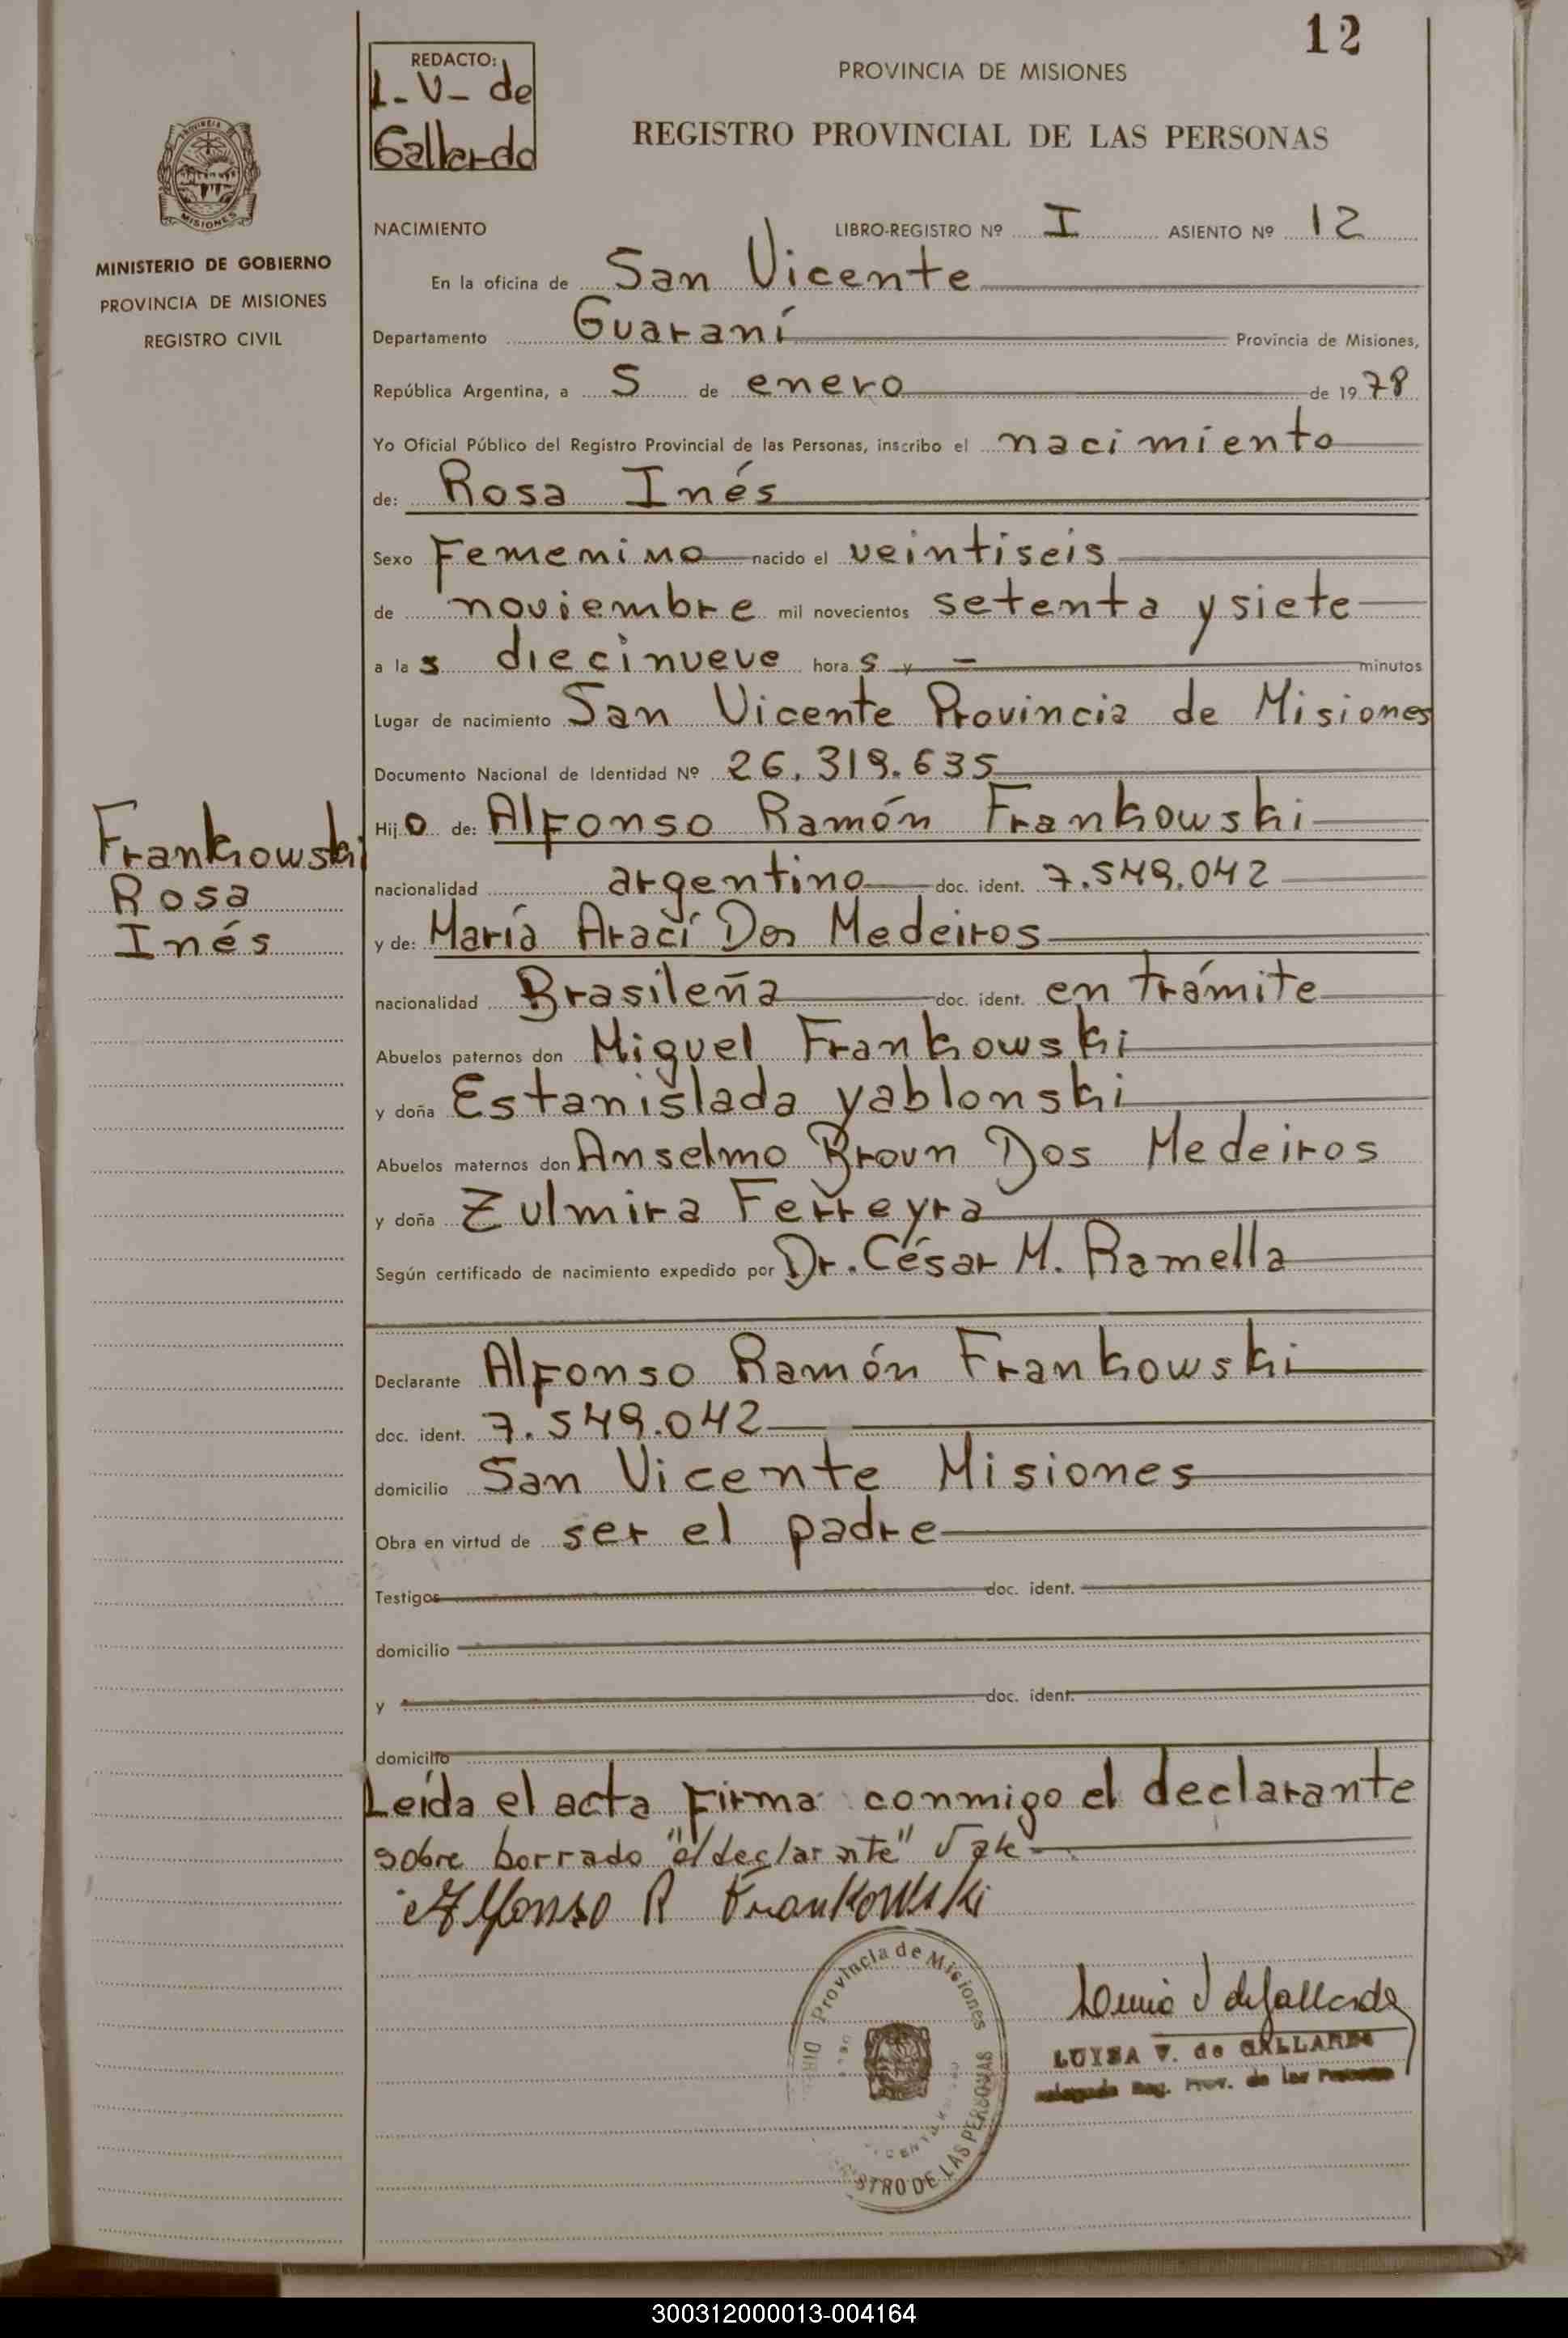 12
REDACTO:
L-V- de
Gallardo
PROVINCIA DE MISIONES
REGISTRO PROVINCIAL DE LAS PERSONAS
MISIONES
MINISTERIO DE GOBIERNO
PROVINCIA DE MISIONES
REGISTRO CIVIL
NACIMIENTO LIBRO-REGISTRO Nº I ASIENTO Nº 12
En la oficina de San Vicente
Departamento Guaraní Provincia de Misiones,
República Argentina, a 5 de enero de 1978
Yo Oficial Público del Registro Provincial de las Personas, inscribo el nacimiento
de: Rosa Inés
Sexo Femenino nacido el veintiseis
de noviembre mil novecientos setenta y siete
a las diecinueve horas y = minutos
Lugar de nacimiento San Vicente Provincia de Misiones
Documento Nacional de Identidad Nº 26.319.635
Frankowski
Rosa
Inés
Hijo de: Alfonso Ramón Frankowski
nacionalidad argentino doc. ident. 7.549.042
y de: María Arací Dos Medeiros
nacionalidad Brasileña doc. ident. en trámite
Abuelos paternos don Miguel Frankowski
y doña Estanislada yablonski
Abuelos maternos don Anselmo Broun Dos Medeiros
y doña Zulmira Ferreyra
Según certificado de nacimiento expedido por Dr. César M. Ramella
Declarante Alfonso Ramón Frankowski
doc. ident. 7.549.042
domicilio San Vicente Misiones
Obra en virtud de ser el padre
Testigos doc. ident.
domicilio
y doc. ident.
domicilio
Leída el acta firma conmigo el declarante
sobre borrado "el declarante" Vale
Alfonso R Frankowski
Provincia de Misiones
DE LAS PERSONAS
LUISA V. de GALLARDO
Reg. Prov. de las Personas
300312000013-004164